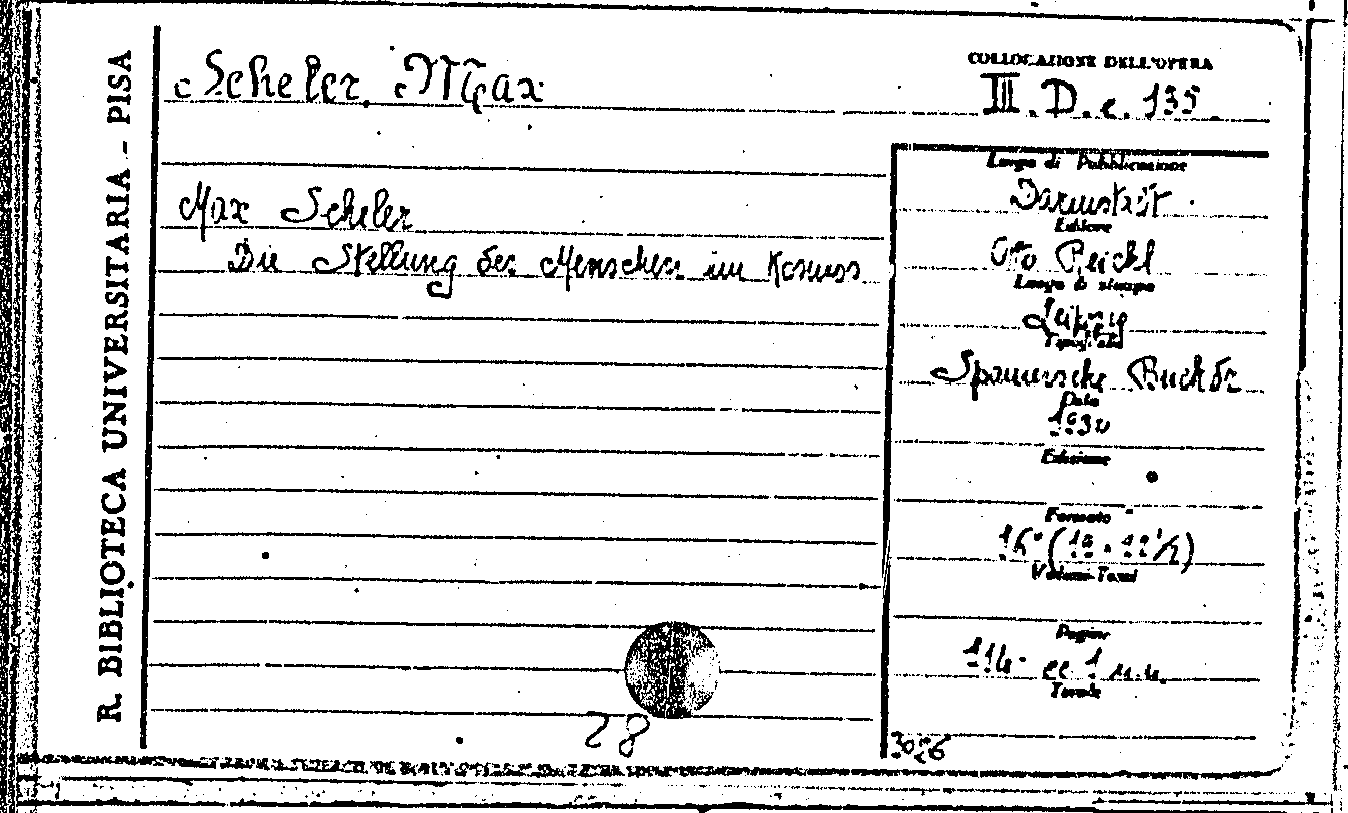 R. BIBLIOTECA UNIVERSITARIA - PISA
Scheler, Max
COLLOCAZIONE DELL'OPERA
III. D. c. 135.
Max Scheler
Die Stellung des Menschen im Kosmos
Luogo di Pubblicazione
Darmstadt
Editore
Otto Reichl
Luogo di stampa
Leipzig
Tipografia
Spamersche Buchdr
Data
1930
Edizione
Formato
16° (19 × 12 1/2)
Volumi-Tomi
Pagine
114 e 1 n.n.
Tavole
28
3026